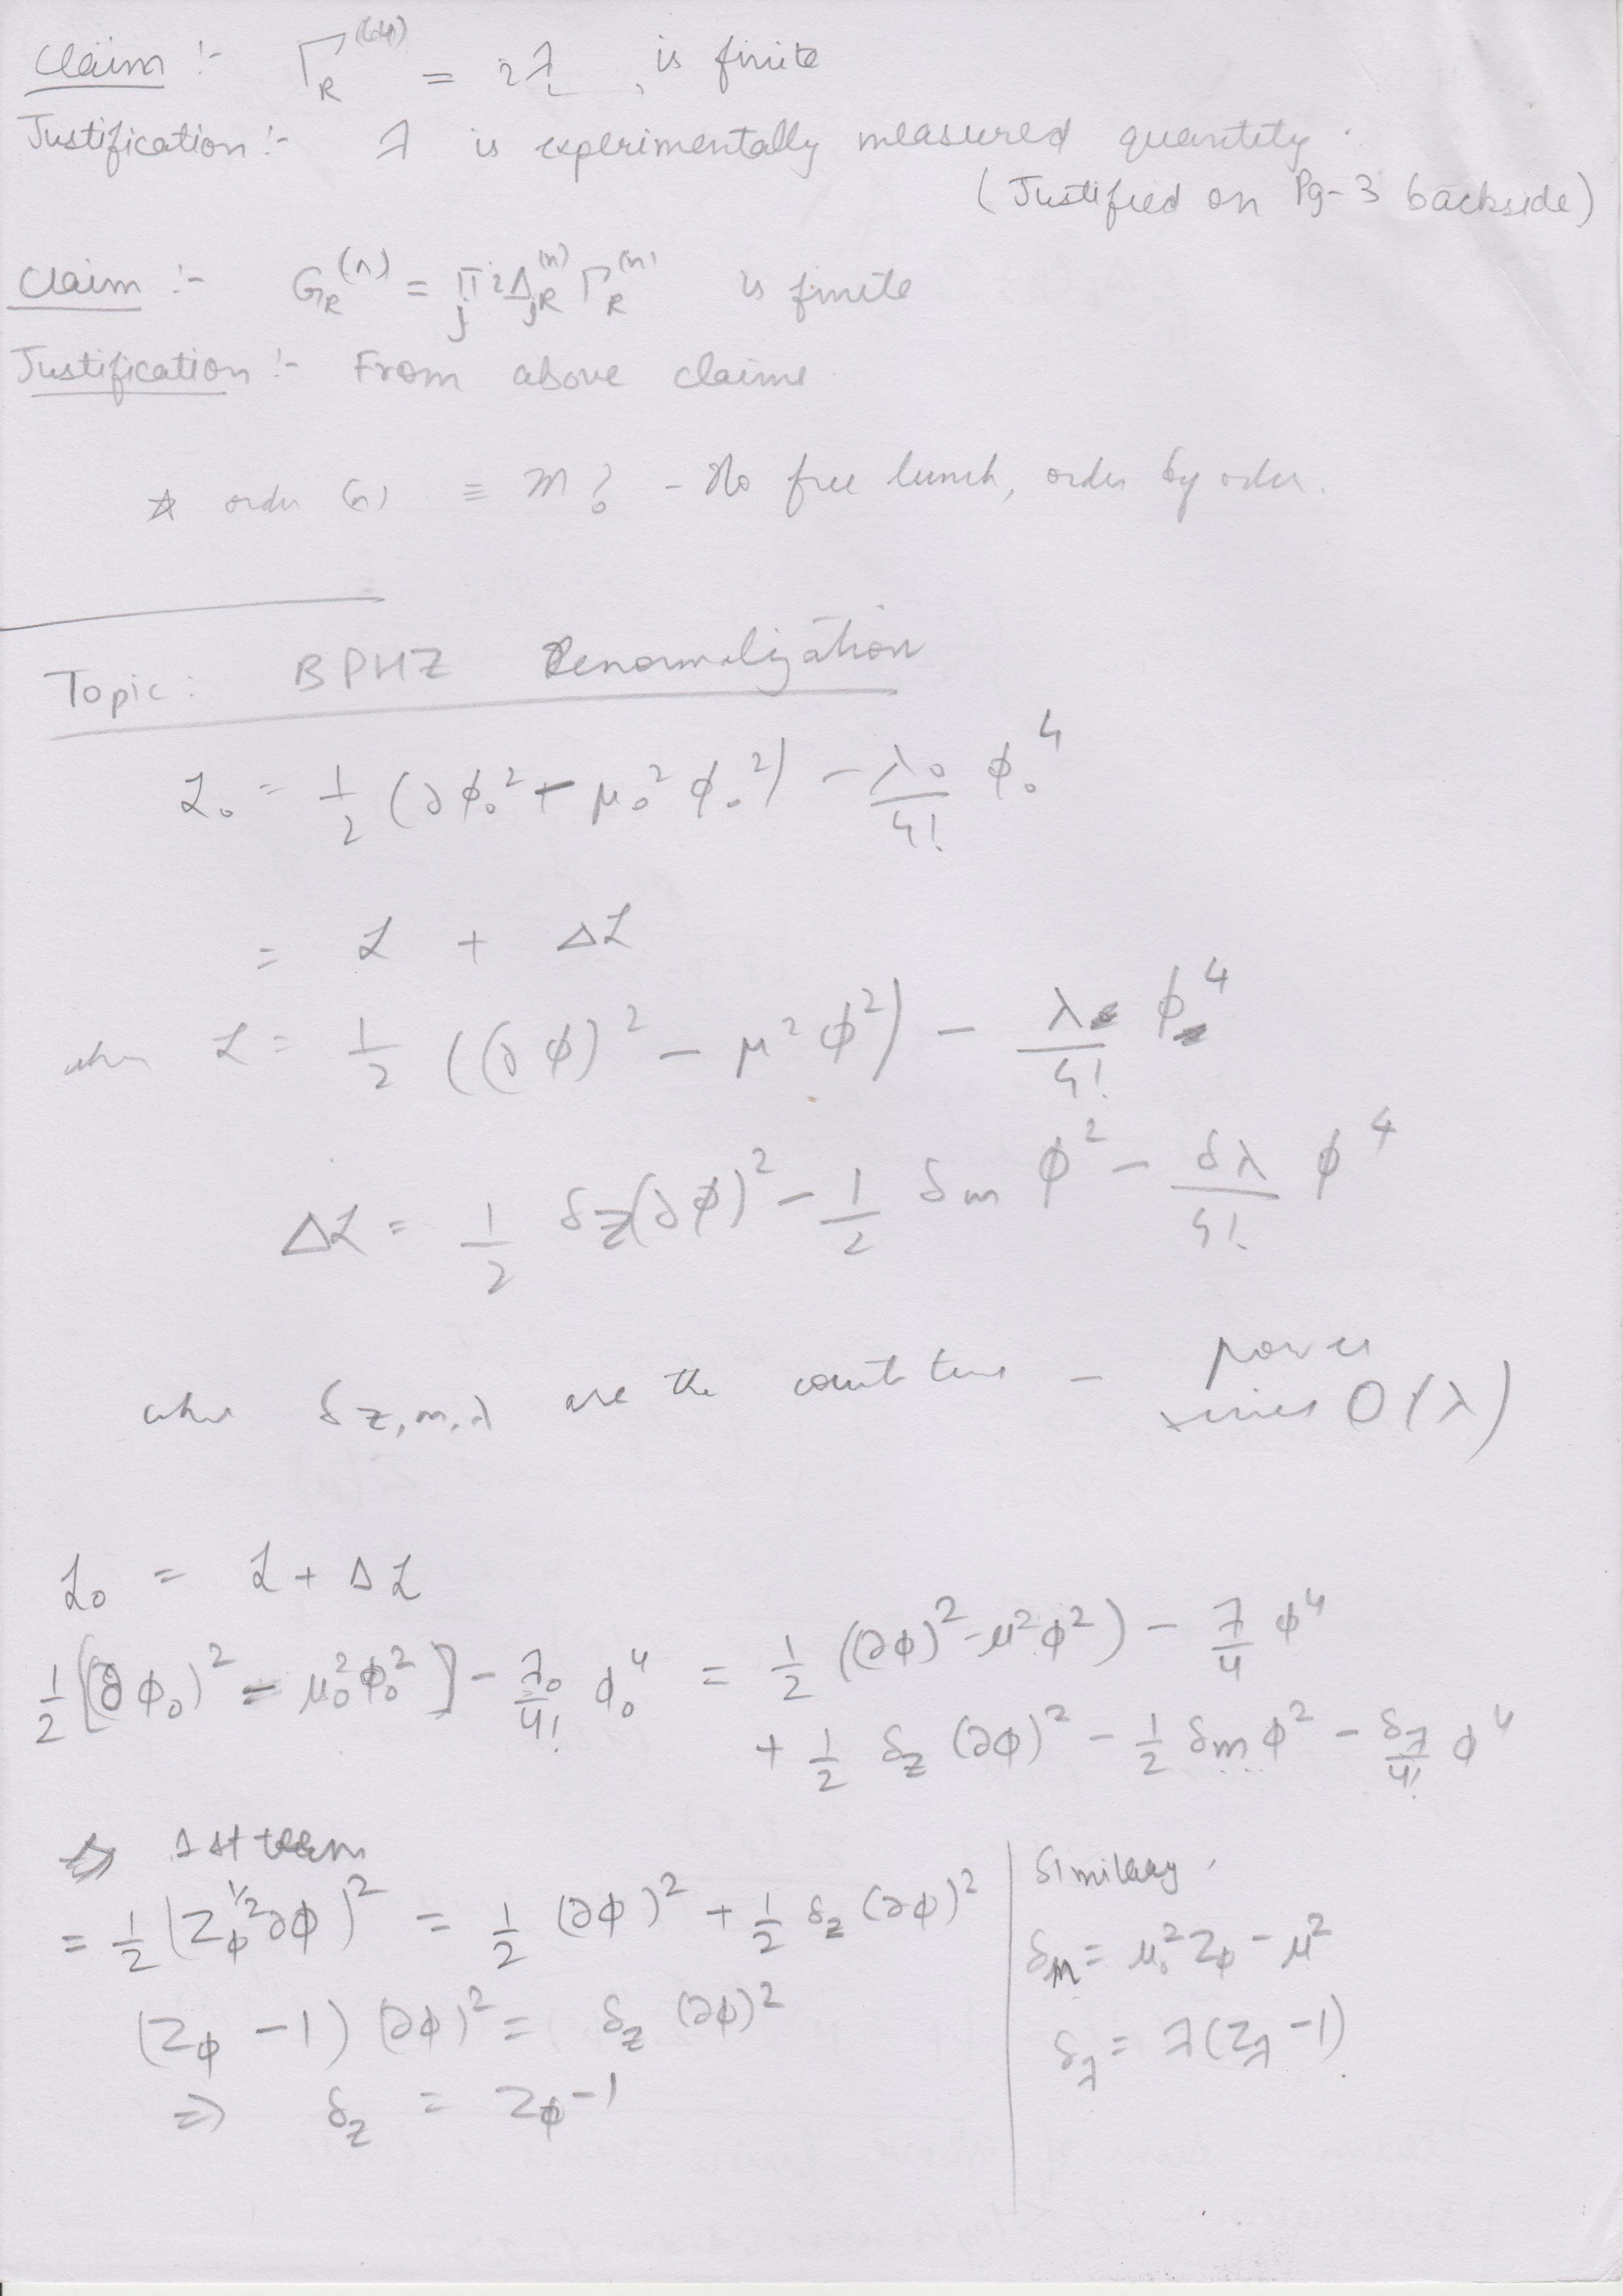 Claim :- Γ_R^(4) = iλ, is finite
Justification :- λ is experimentally measured quantity.
(Justified on Pg-3 backside)
Claim :- G_R^(n) = Π_j iΔ_jR^(n) Γ_R^(n) is finite
Justification :- From above claims.
☆ order (n) ≡ m? - No free lunch, order by order.
Topic: BPHZ Renormalization
ℒ₀ = 1/2 (∂φ₀² + μ₀² φ₀²) - λ₀/4! φ₀⁴
= ℒ + Δℒ
when ℒ = 1/2 ((∂φ)² - μ² φ²) - λ/4! φ⁴
Δℒ = 1/2 δ_Z (∂φ)² - 1/2 δ_m φ² - δλ/4! φ⁴
where δ_Z,m,λ are the count terms - power
series O(λ)
ℒ₀ = ℒ + Δℒ
1/2 [(∂φ₀)² - μ₀² φ₀²] - λ₀/4! φ₀⁴ = 1/2 (∂φ)² - μ² φ²) - λ/4 φ⁴
+ 1/2 δ_Z (∂φ)² - 1/2 δ_m φ² - δ_λ/4! φ⁴
1st term
= 1/2 (Z_φ^1/2 ∂φ)² = 1/2 (∂φ)² + 1/2 δ_Z (∂φ)²
(Z_φ - 1) (∂φ)² = δ_Z (∂φ)²
⇒ δ_Z = Z_φ - 1
Similary,
δ_m = μ₀² Z_φ - μ²
δ_λ = λ(Z_λ - 1)